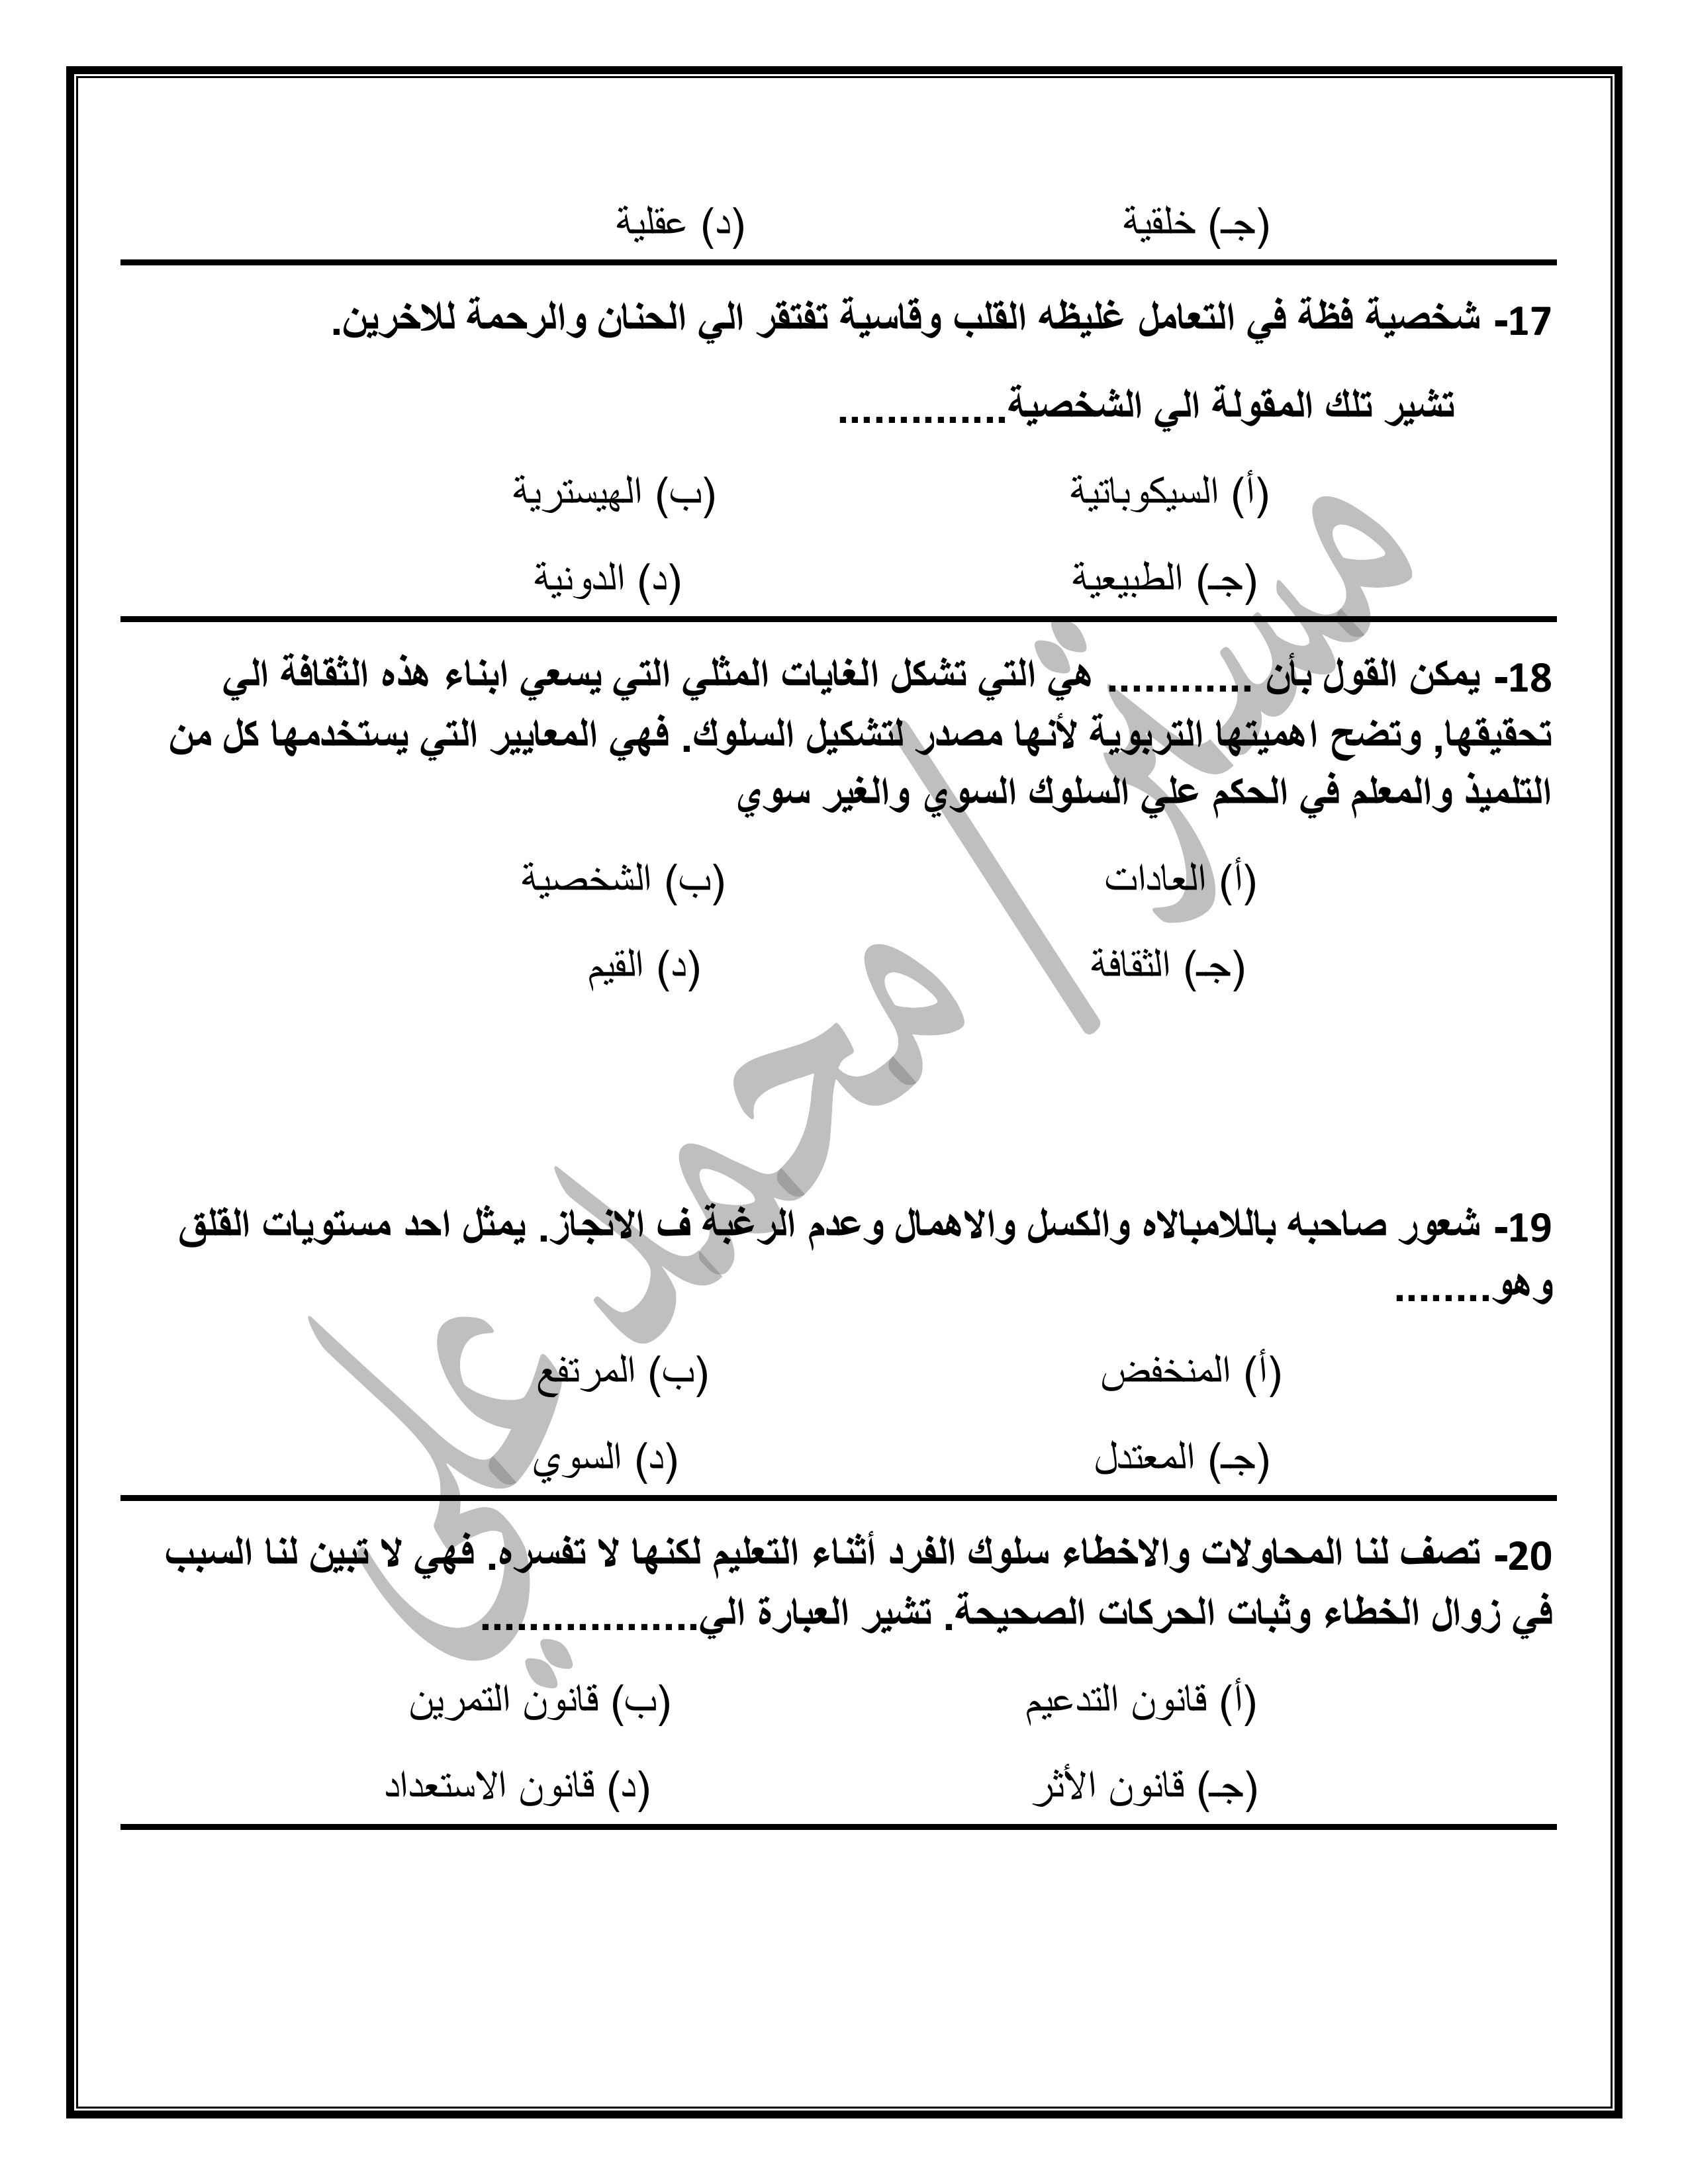 (جـ) خلقية (د) عقلية
17- شخصية فظة في التعامل غليظه القلب وقاسية تفتقر الي الحنان والرحمة للاخرين.
تشير تلك المقولة الي الشخصية..............
(أ) السيكوباتية (ب) الهيسترية
(جـ) الطبيعية (د) الدونية
18- يمكن القول بأن ............ هي التي تشكل الغايات المثلي التي يسعي ابناء هذه الثقافة الي
تحقيقها, وتضح اهميتها التربوية لأنها مصدر لتشكيل السلوك. فهي المعايير التي يستخدمها كل من
التلميذ والمعلم في الحكم علي السلوك السوي والغير سوي
(أ) العادات (ب) الشخصية
(جـ) الثقافة (د) القيم
19- شعور صاحبه باللامبالاه والكسل والاهمال وعدم الرغبة ف الانجاز. يمثل احد مستويات القلق
وهو........
(أ) المنخفض (ب) المرتفع
(جـ) المعتدل (د) السوي
20- تصف لنا المحاولات والاخطاء سلوك الفرد أثناء التعليم لكنها لا تفسره. فهي لا تبين لنا السبب
في زوال الخطاء وثبات الحركات الصحيحة. تشير العبارة الي..................
(أ) قانون التدعيم (ب) قانون التمرين
(جـ) قانون الأثر (د) قانون الاستعداد
مستر/ محمد علي